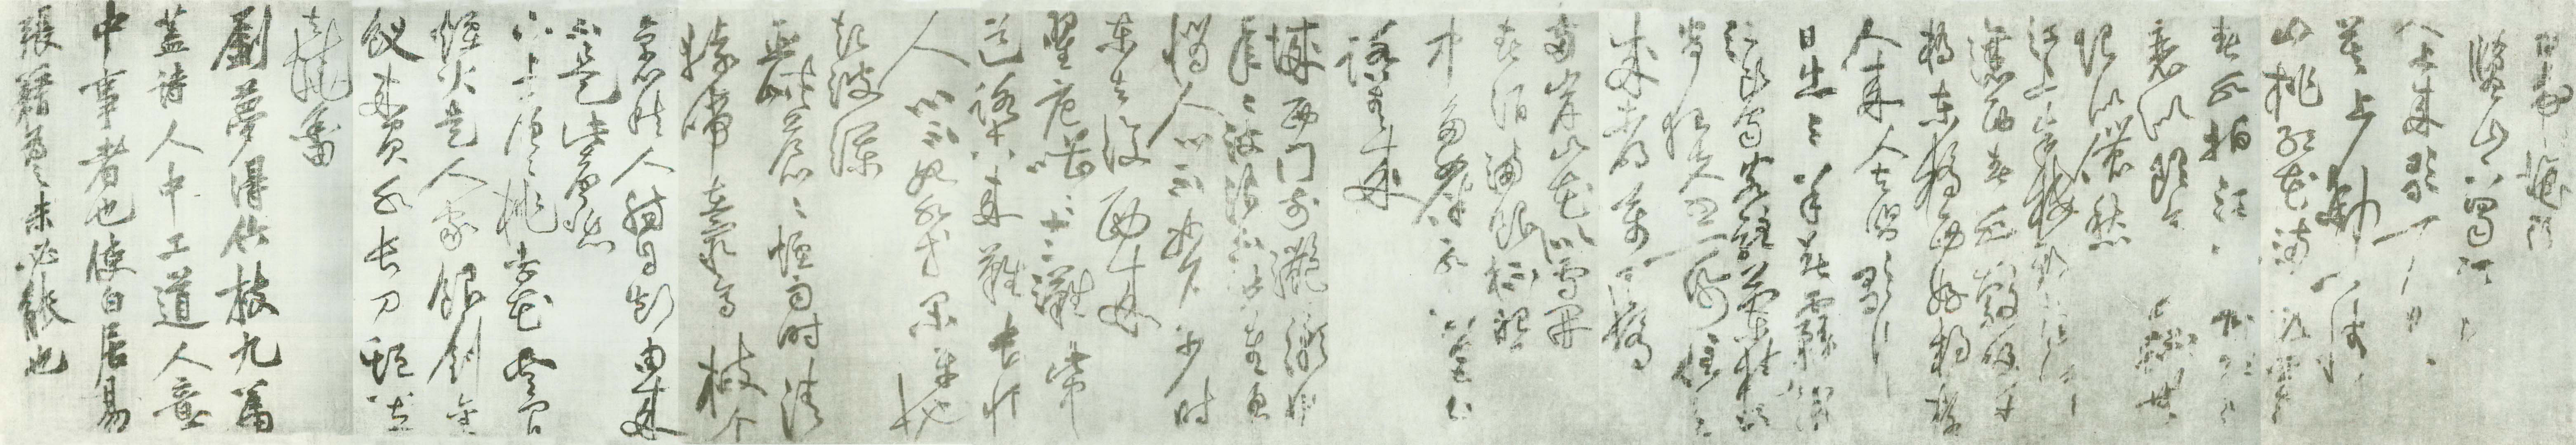 鹽山下蜀江
人上來歌一
莫上動鄉情
山桃紅花滿上頭
春水拍江
衰似郎意
限似儂愁
江上朱樓新雨晴
瀼西春水縠紋生
橋東橋西好楊柳
人來人去唱歌行
日出三竿春霧消
江頭蜀客駐蘭橈憑
寄狂夫書一紙住在
成都萬里橋
兩岸山花似雪開
家春酒滿銀杯昭
中多女伴永安宮外
踏青來
城西門前灩澦堆
年年波浪不能摧
懊惱人心不如石少時
東去復西來
瞿唐嘈嘈十二灘
道路古來難長恨
人心不如水等閒平地
起波瀾
巫峽蒼蒼煙雨時清
猿啼在最高枝个
裏愁人腸自斷由來
不是此聲悲
山上層層桃李花雲間
煙火是人家銀釧金
釵來負水長刀短笠
去燒畬
劉夢得竹枝九篇
蓋詩人中工道人意
中事者也使白居易
張籍為之未必能也